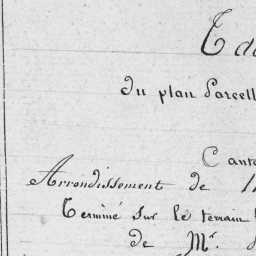 du plan Parcell
Cant
Arrondissement de
Terminé sur le terrain
de Mr.